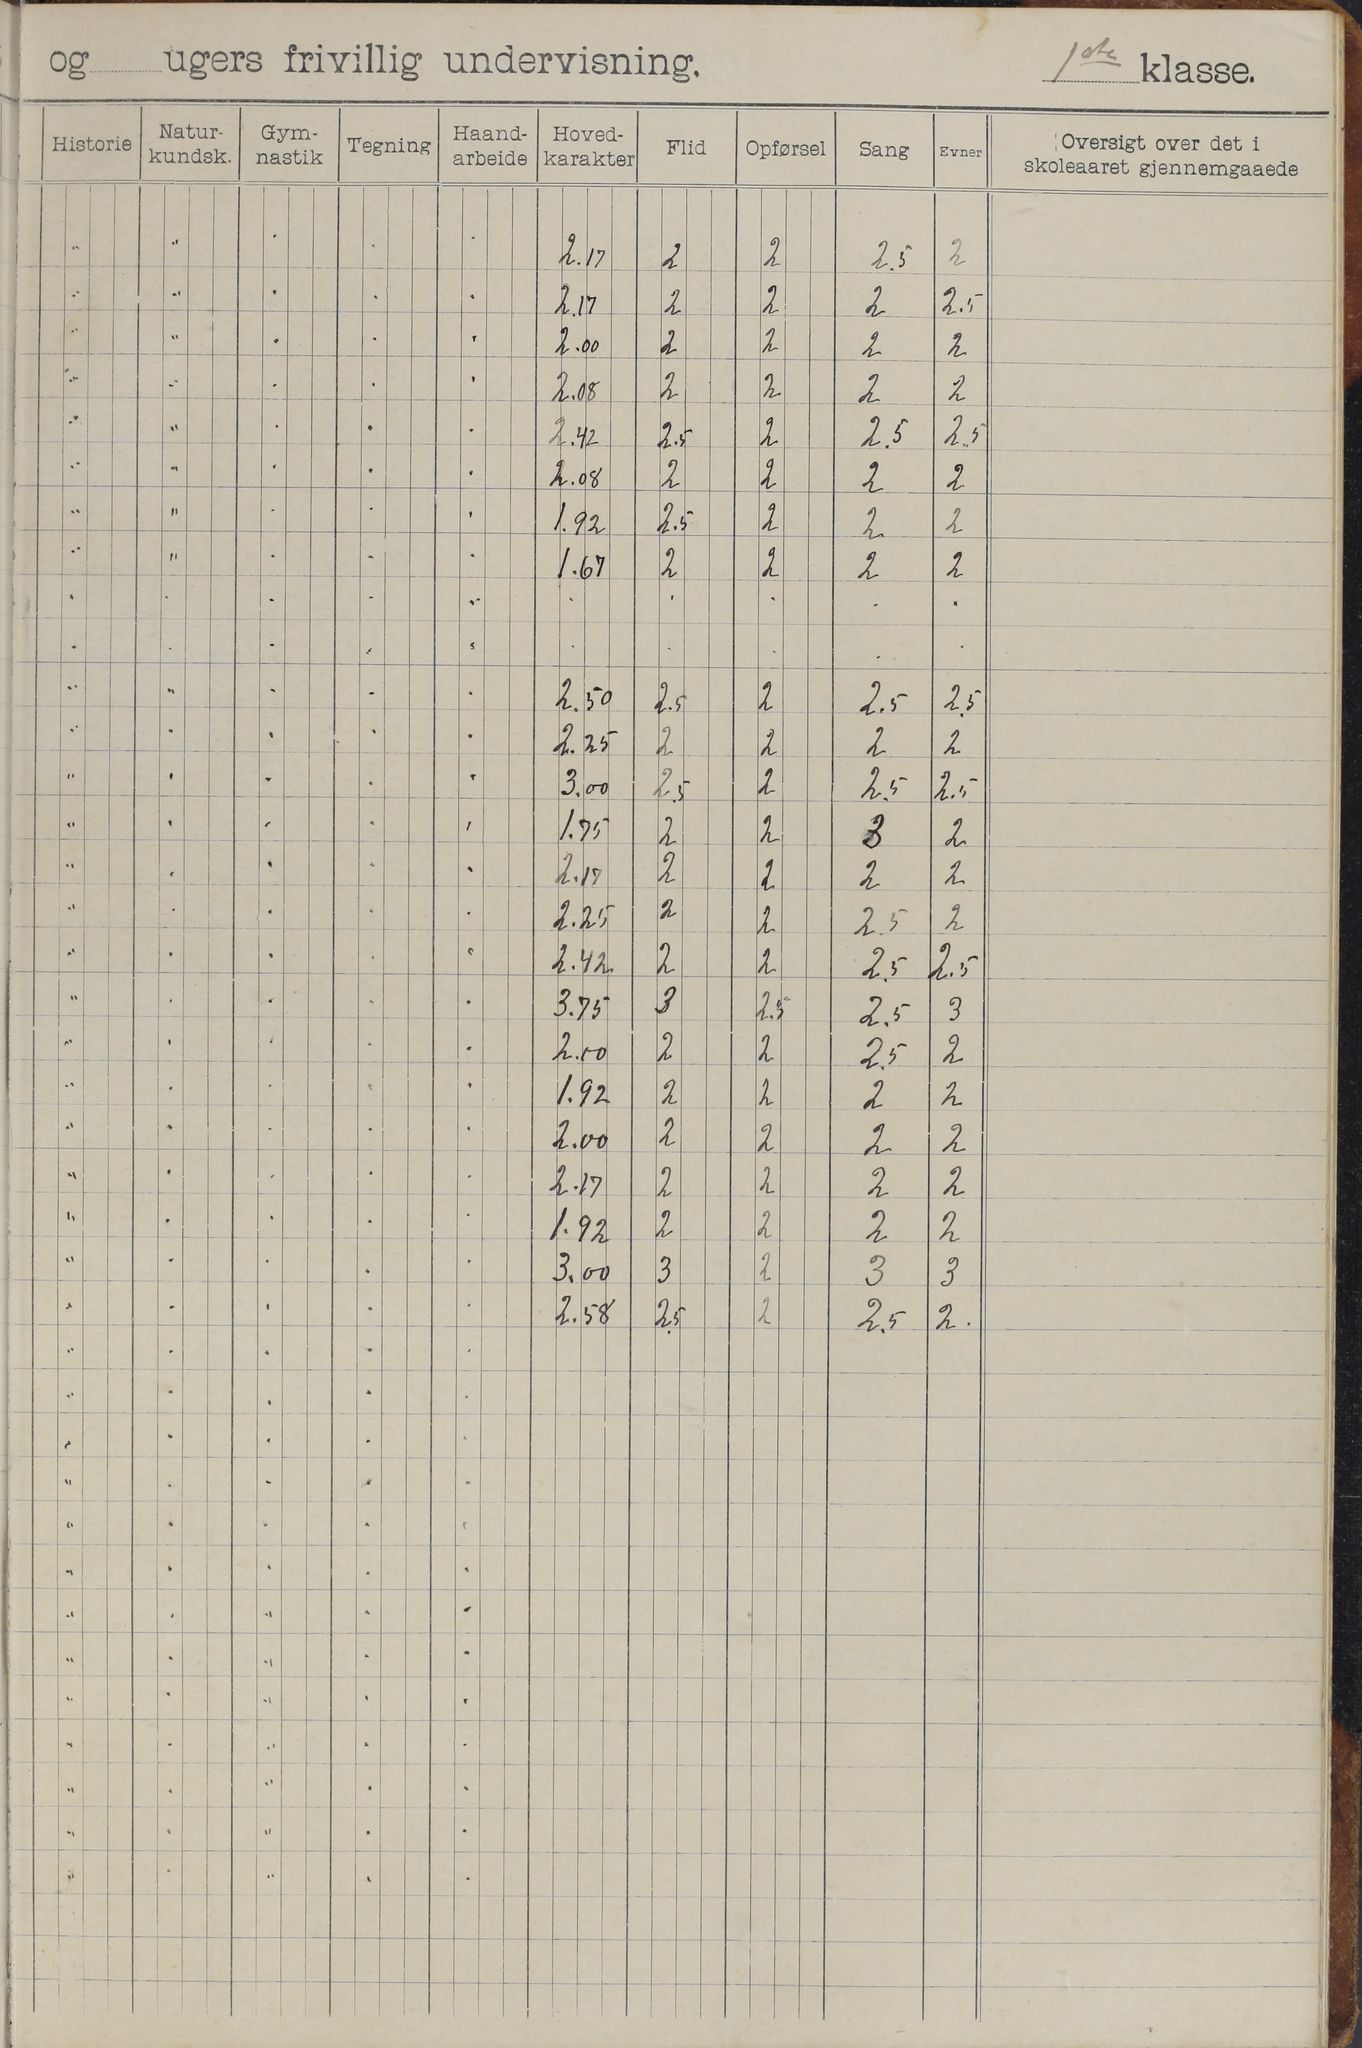 og ugers frivillig undervisning. 1ste klasse.
Historie Natur-kundsk. Gym-nastik Tegning Haand-arbeide Hoved-karakter Flid Opførsel Sang Evner Oversigt over det i skoleaaret gjennemgaaede
" " . . . 2.17 2 2 2.5 2
" " . . . 2.17 2 2 2 2.5
" " . . . 2.00 2 2 2 2
" " . . . 2.08 2 2 2 2
" " . . . 2.42 2.5 2 2.5 2.5
" " . . . 2.08 2 2 2 2
" " . . . 1.92 2.5 2 2 2
" " . . . 1.67 2 2 2 2
. . . . " . . . . .
. . . . " . . . . .
" " . . . 2.50 2.5 2 2.5 2.5
" . . . . 2.25 2 2 2 2
" . . . . 3.00 2.5 2 2.5 2.5
" . . . . 1.75 2 2 3 2
" . . . . 2.17 2 2 2 2
" . . . . 2.25 2 2 2.5 2
" . . . . 2.42 2 2 2.5 2.5
" . . . . 3.75 3 2.5 2.5 3
" . . . . 2.00 2 2 2.5 2
" . . . . 1.92 2 2 2 2
" . . . . 2.00 2 2 2 2
" . . . . 2.17 2 2 2 2
" . . . . 1.92 2 2 2 2
" . . . . 3.00 3 2 3 3
" . . . . 2.58 2.5 2 2.5 2.
" . . . .
" . . . .
" . . . .
" . . . .
" . . . .
" . . . .
" . " . .
" . " . .
" . " . .
" . " . .
" . " . .
" . " . .
" . " . .